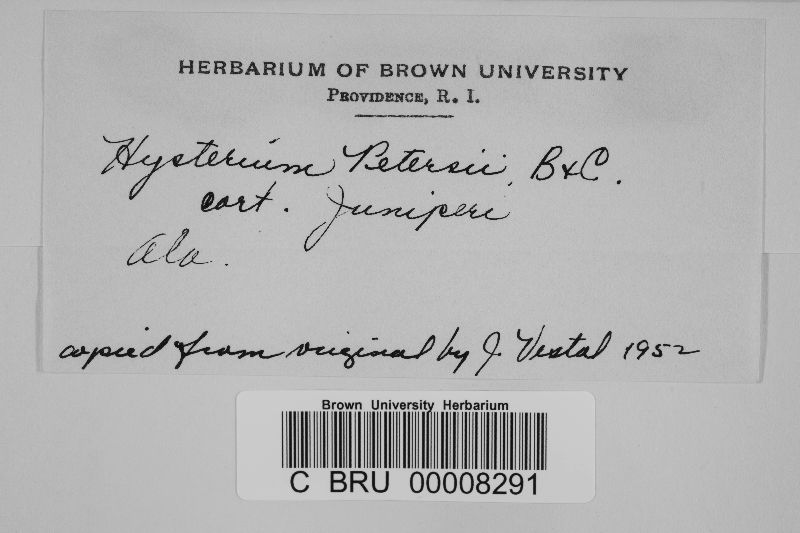 HERBARIUM OF BROWN UNIVERSITY
PROVIDENCE, R. I.
Hysterium Petersii, B&C.
cort. Juniperi
Ala.
copied from original by J. Vestal 1952
Brown University Herbarium
C BRU 00008291